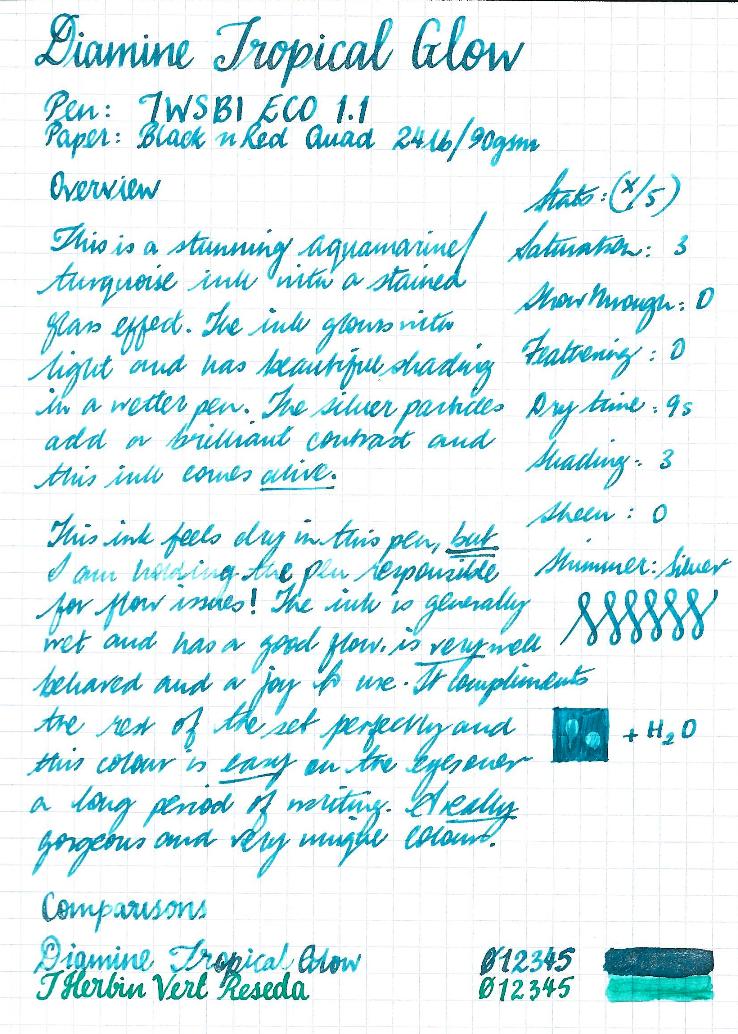 Diamine Tropical Glow
Pen: TWSBI ECO 1.1
Paper: Black n Red Quad 24lb/90gsm
Overview
This is a stunning aquamarine/
turquoise ink with a stained
glass effect. The ink glows with
light and has beautiful shading
in a wetter pen. The silver particles
add a brilliant contrast and
this ink comes alive.
This ink feels dry in this pen, but
I am holding the pen responsible
for flow issues! The ink is generally
wet and has a good flow. is very well
behaved and a joy to use. It compliments
the rest of the set perfectly and
this colour is easy on the eyes over
a long period of writing. A really
gorgeous and very unique colour.
Stats: (x/5)
Saturation: 3
Showthrough: 0
Feathering: 0
Dry time: 9s
Shading: 3
Sheen: 0
Shimmer: Silver
+ H2O
Comparisons
Diamine Tropical Glow 012345
J Herbin Vert Reseda 012345